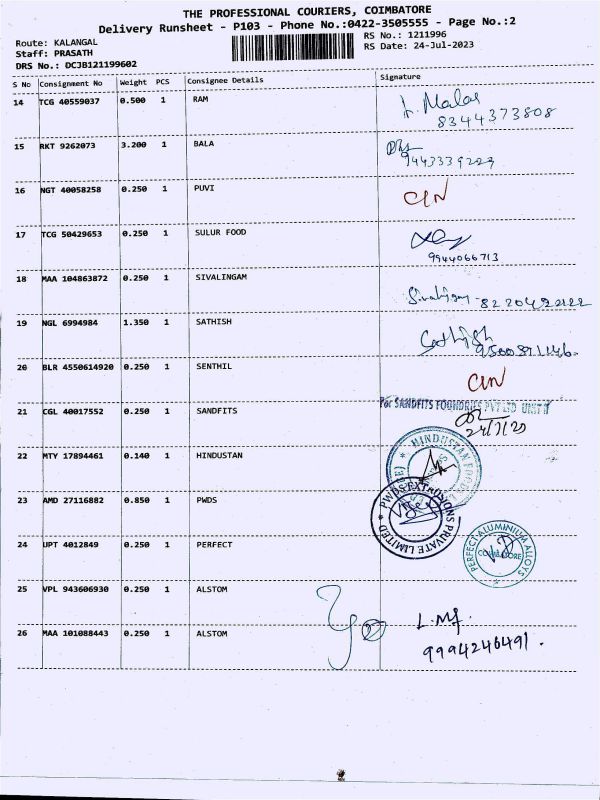 THE PROFESSIONAL COURIERS, COIMBATORE
Delivery Runsheet - P103 - Phone No.:0422-3505555 - Page No.:2
Route: KALANGAL
Staff: PRASATH
DRS No.: DCJB121199602
RS No.: 1211996
RS Date: 24-Jul-2023
S No Consignment No Weight PCS Consignee Details Signature
14 TCG 40559037 0.500 1 RAM
8344373808
15 RKT 9262073 3.200 1 BALA
16 NGT 40058258 0.250 1 PUVI
17 TCG 50429653 0.250 1 SULUR FOOD
9944066713
18 MAA 104863872 0.250 1 SIVALINGAM
19 NGL 6994984 1.350 1 SATHISH
Sathish
20 BLR 4550614920 0.250 1 SENTHIL
21 CGL 40017552 0.250 1 SANDFITS
For SANDFITS FOUNDRIES PVT LTD UNIT II
22 MTY 17894461 0.140 1 HINDUSTAN
HINDUSTAN
23 AMD 27116882 0.850 1 PWDS
PWDS EXTRUSIONS PRIVATE LIMITED
24 UPT 4012849 0.250 1 PERFECT
PERFECT ALUMINIUM ALLOYS
COIMBATORE
25 VPL 943606930 0.250 1 ALSTOM
26 MAA 101088443 0.250 1 ALSTOM
9994246491.